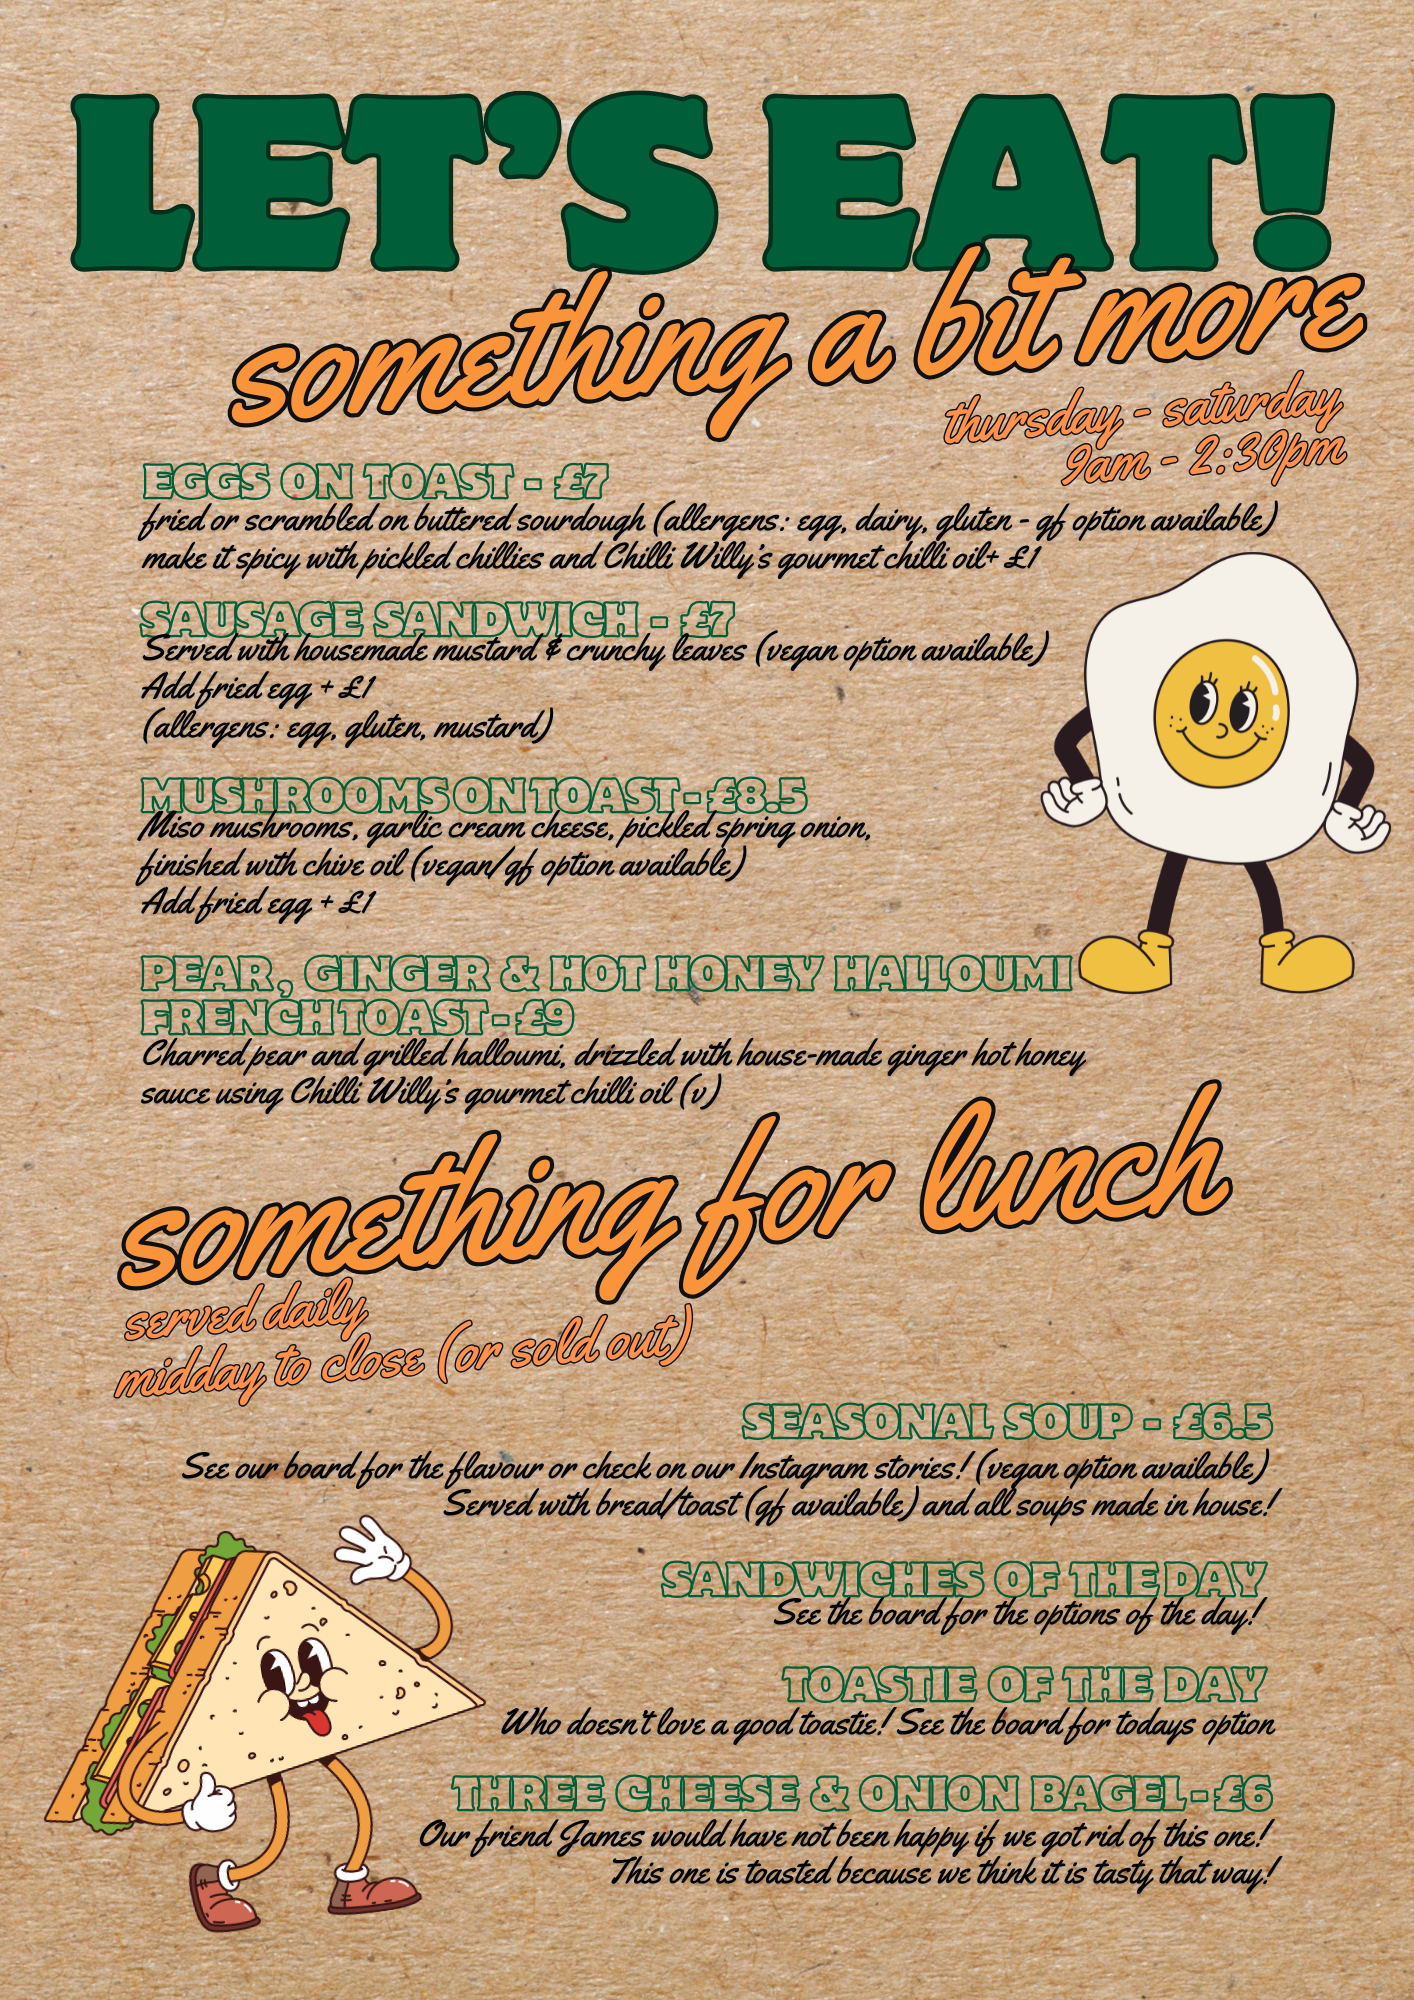 LET'S EAT!
something a bit more
thursday - saturday
9am - 2:30pm
EGGS ON TOAST - £7
fried or scrambled on buttered sourdough (allergens: egg, dairy, gluten - gf option available)
make it spicy with pickled chillies and Chilli Willy's gourmet chilli oil+ £1
SAUSAGE SANDWICH - £7
Served with housemade mustard & crunchy leaves (vegan option available)
Add fried egg + £1
(allergens: egg, gluten, mustard)
MUSHROOMS ON TOAST - £8.5
Miso mushrooms, garlic cream cheese, pickled spring onion,
finished with chive oil (vegan/gf option available)
Add fried egg + £1
PEAR, GINGER & HOT HONEY HALLOUMI
FRENCH TOAST - £9
Charred pear and grilled halloumi, drizzled with house-made ginger hot honey
sauce using Chilli Willy's gourmet chilli oil (v)
something for lunch
served daily
midday to close (or sold out)
SEASONAL SOUP - £6.5
See our board for the flavour or check on our Instagram stories! (vegan option available)
Served with bread/toast (gf available) and all soups made in house!
SANDWICHES OF THE DAY
See the board for the options of the day!
TOASTIE OF THE DAY
Who doesn't love a good toastie! See the board for todays option
THREE CHEESE & ONION BAGEL - £6
Our friend James would have not been happy if we got rid of this one!
This one is toasted because we think it is tasty that way!